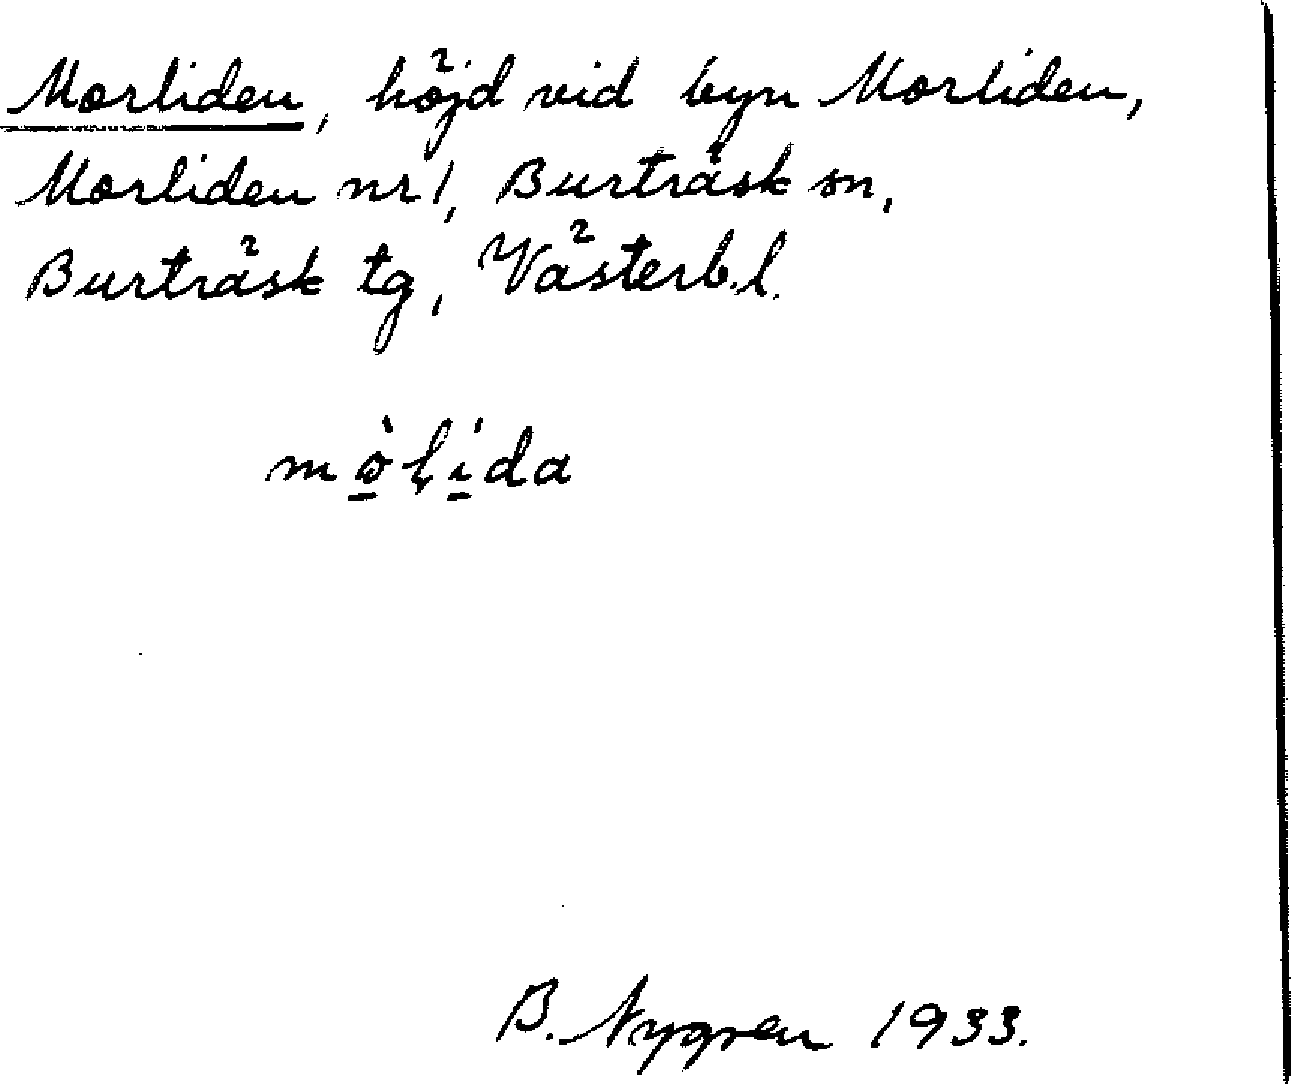 Morliden, höjd vid byn Morliden,
Morliden nr 1, Burträsk sn,
Burträsk tg, Västerb. l.
mò̱ḷí̱da
B. Nygren 1933.